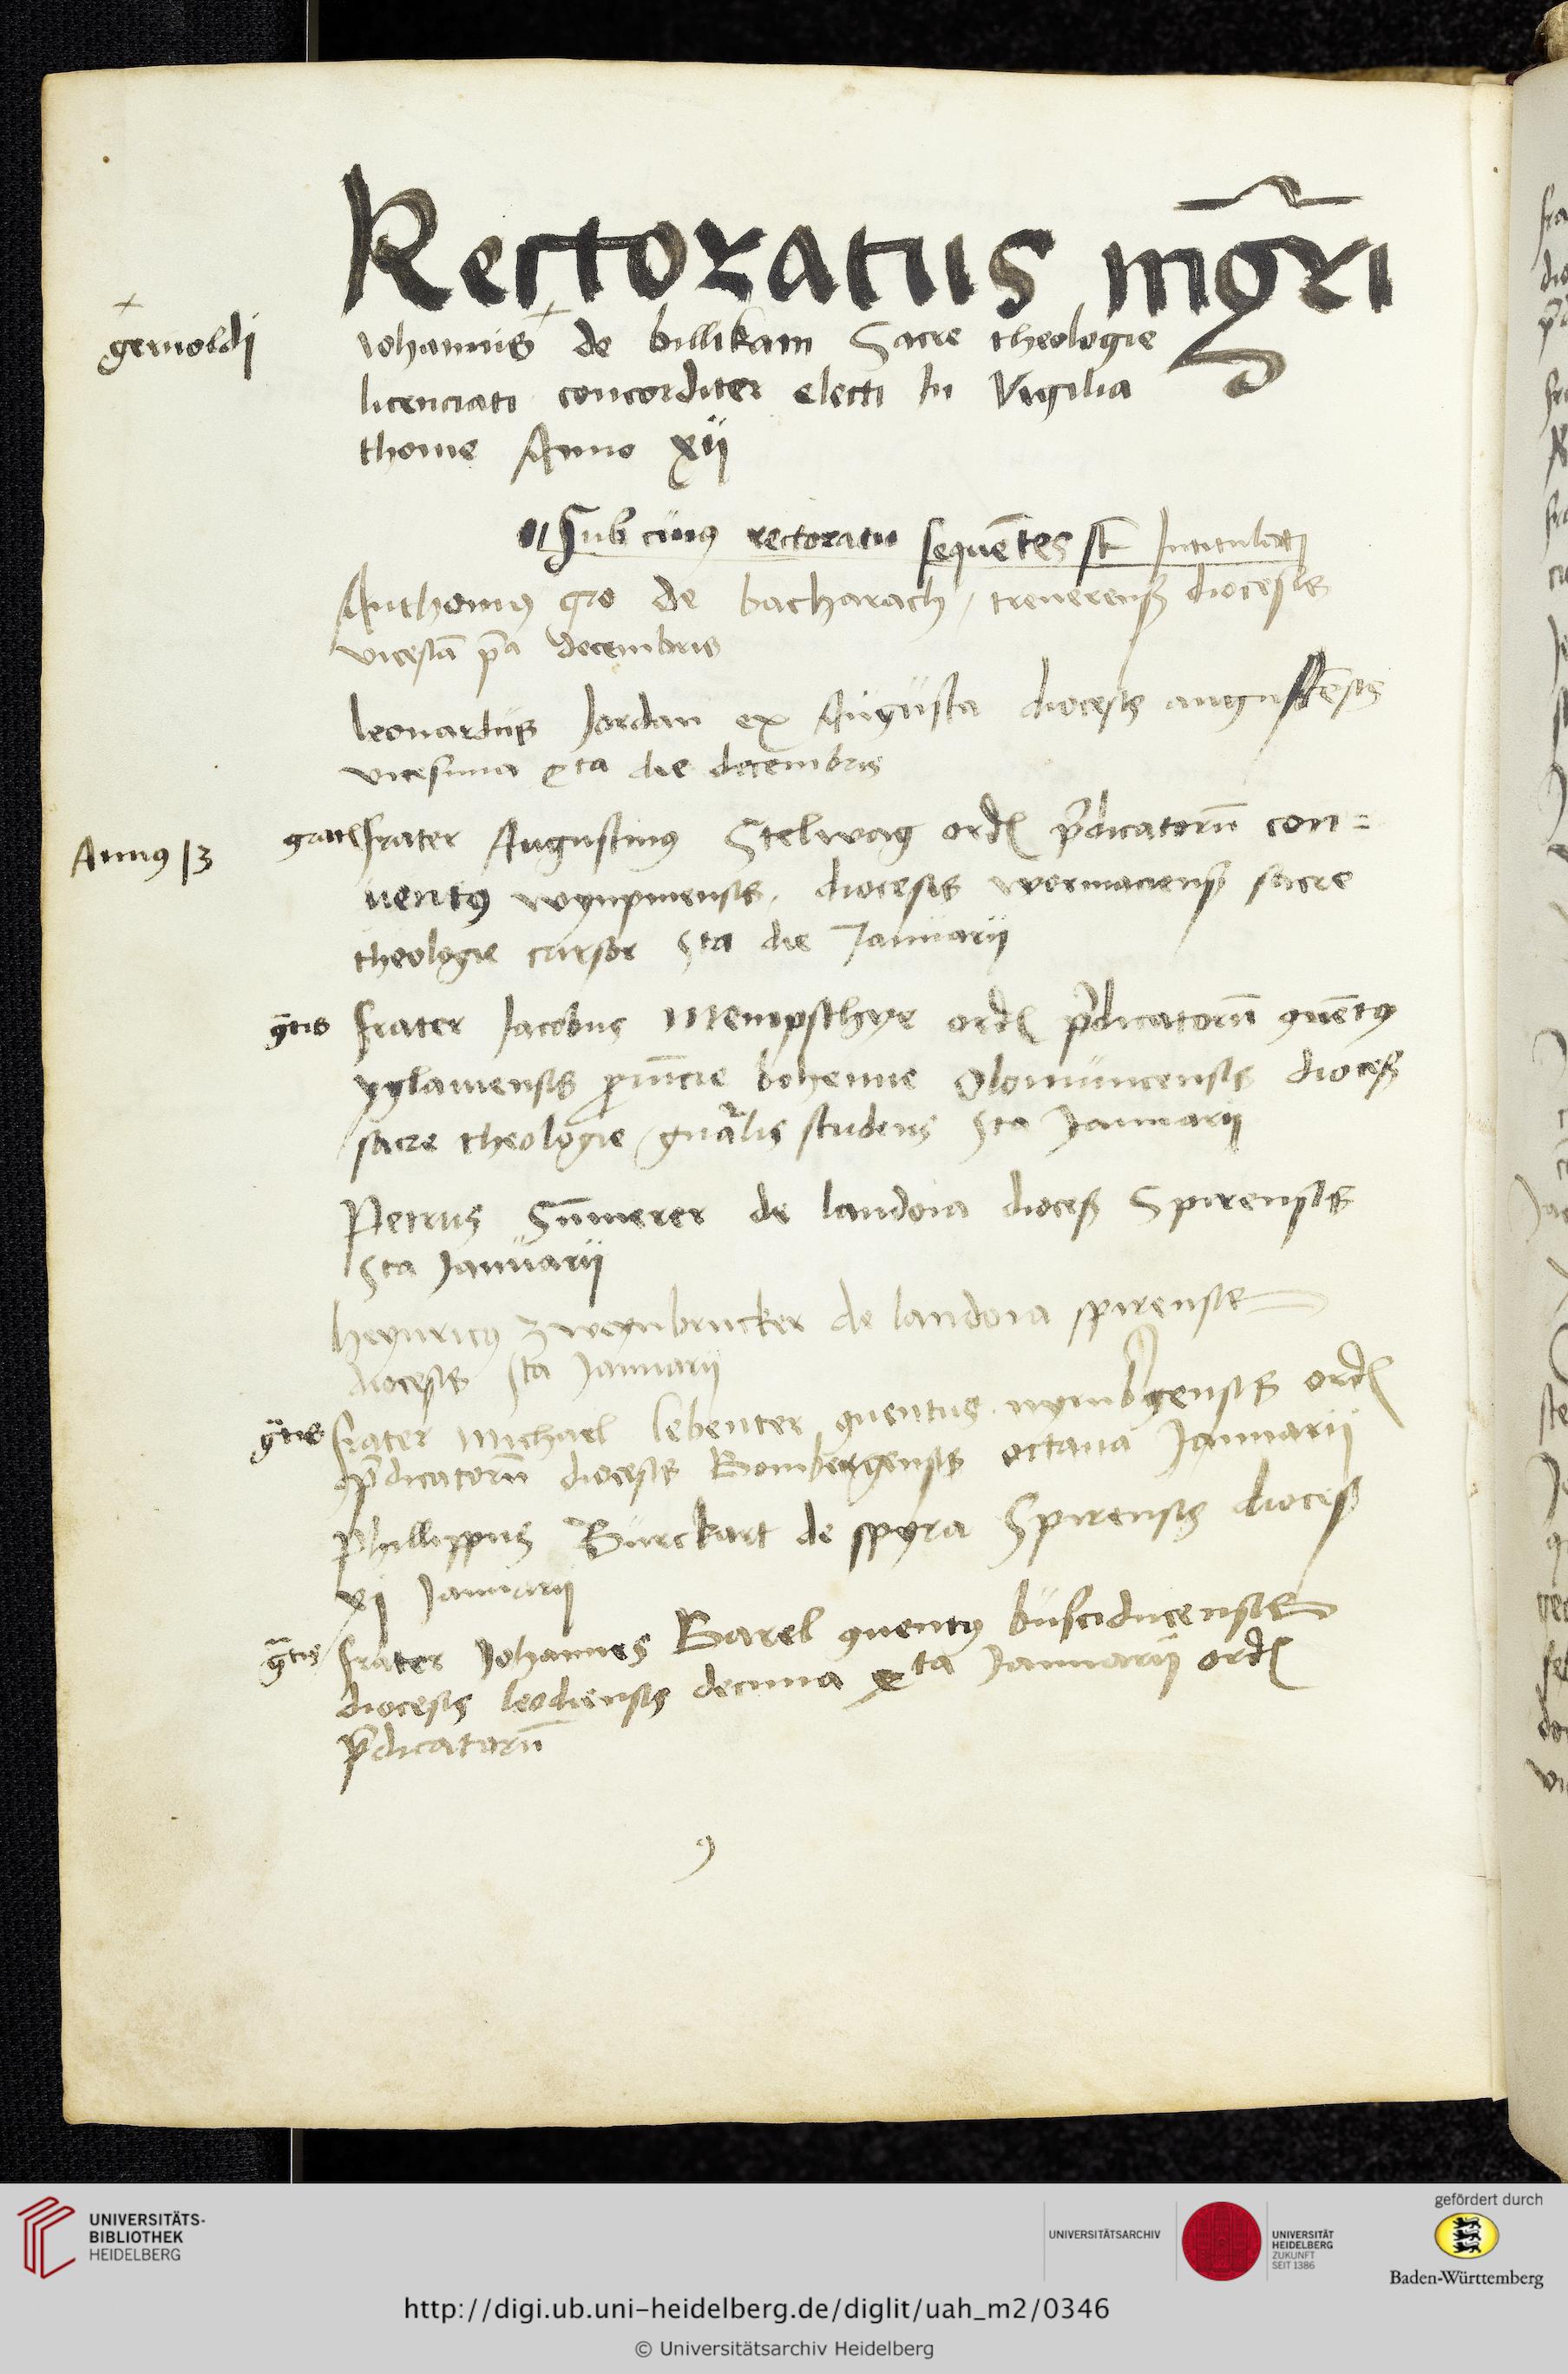 Rectoratus mg̃ri
+
gernoldi
Johannis + de billikam Sacre theologie
licenciati concorditer electi In Vigilia
thome Anno xij
Sub cuiꝰ rectoratu sequẽtes st̄ Intitulati
Anthoniꝰ gro de bacharach, treuerenß diocesis
vicesiā p̄a decembris
leonardus Jordan ex Augusta diocesis augustẽsis
vicesima xta die decembris
Annꝰ 13
gratis frater Augustinus Stelwag ordĩ p̃dicatorũ con=
uentꝰ wympinensis, diocesis wormaciensß sacre
theologie cursor Sta die Januarij
gr̄tis frater Jacobus Mempsthyr ordĩ p̃dicatorũ ꝯuẽtꝰ
yglauiensis ꝓuĩcie bohemie Olomuncensis dioceß
sacre theologie gn̄alis studens Sta Januarij
Petrus Sũmerer de landoia dioceß Spirensis
Sta Januarij
heynricꝰ zweynbrucker de landoia spirensis
diocesis sta Januarij
gr̄tis frater Michael lebenter ꝯuentus nyrmbgensis ordĩ
p̃dicatorũ diocesis Bombergensis octaua Januarij
Phillippus Burckart de spyra Spirensis dioceß
xj Januarij
gr̄tis frater Johannes Barel ꝯuentꝰ busciducensis
diocesis leodiensis decima xta Januarij ordĩ
p̃dicatorũ
9
UNIVERSITÄTS-
BIBLIOTHEK
HEIDELBERG
UNIVERSITÄTSARCHIV
UNIVERSITÄT
HEIDELBERG
ZUKUNFT
SEIT 1386
gefördert durch
Baden-Württemberg
http://digi.ub.uni-heidelberg.de/diglit/uah_m2/0346
© Universitätsarchiv Heidelberg